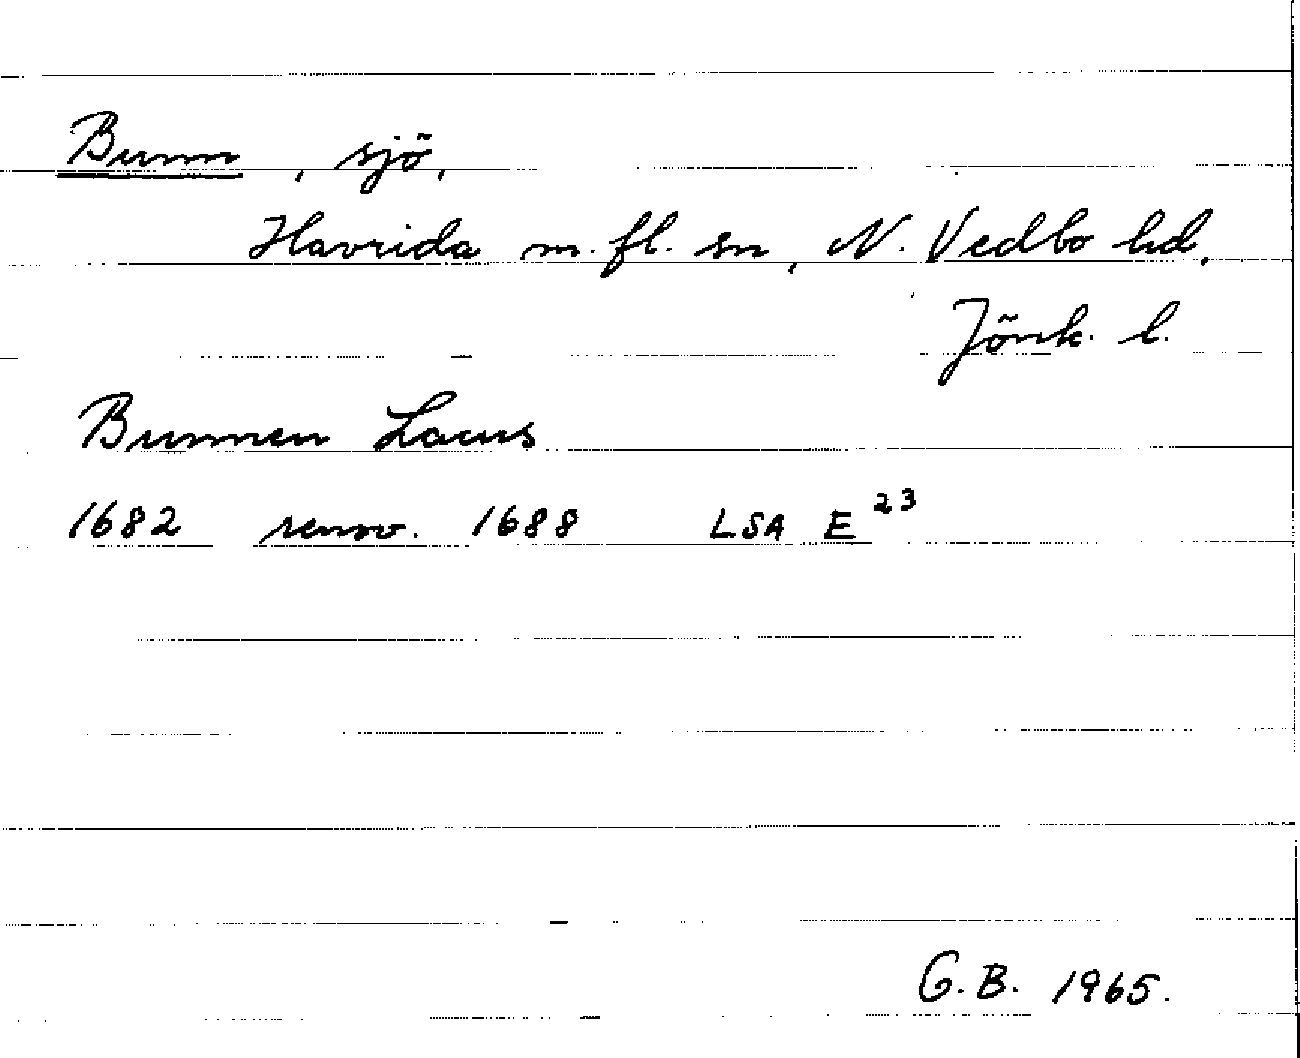 Bunn, sjö,
Haurida m. fl. sn, N. Vedbo hd,
Jönk. l.
Bunnen Lacus
1682 renov. 1688 LSA E 23
G. B. 1965.